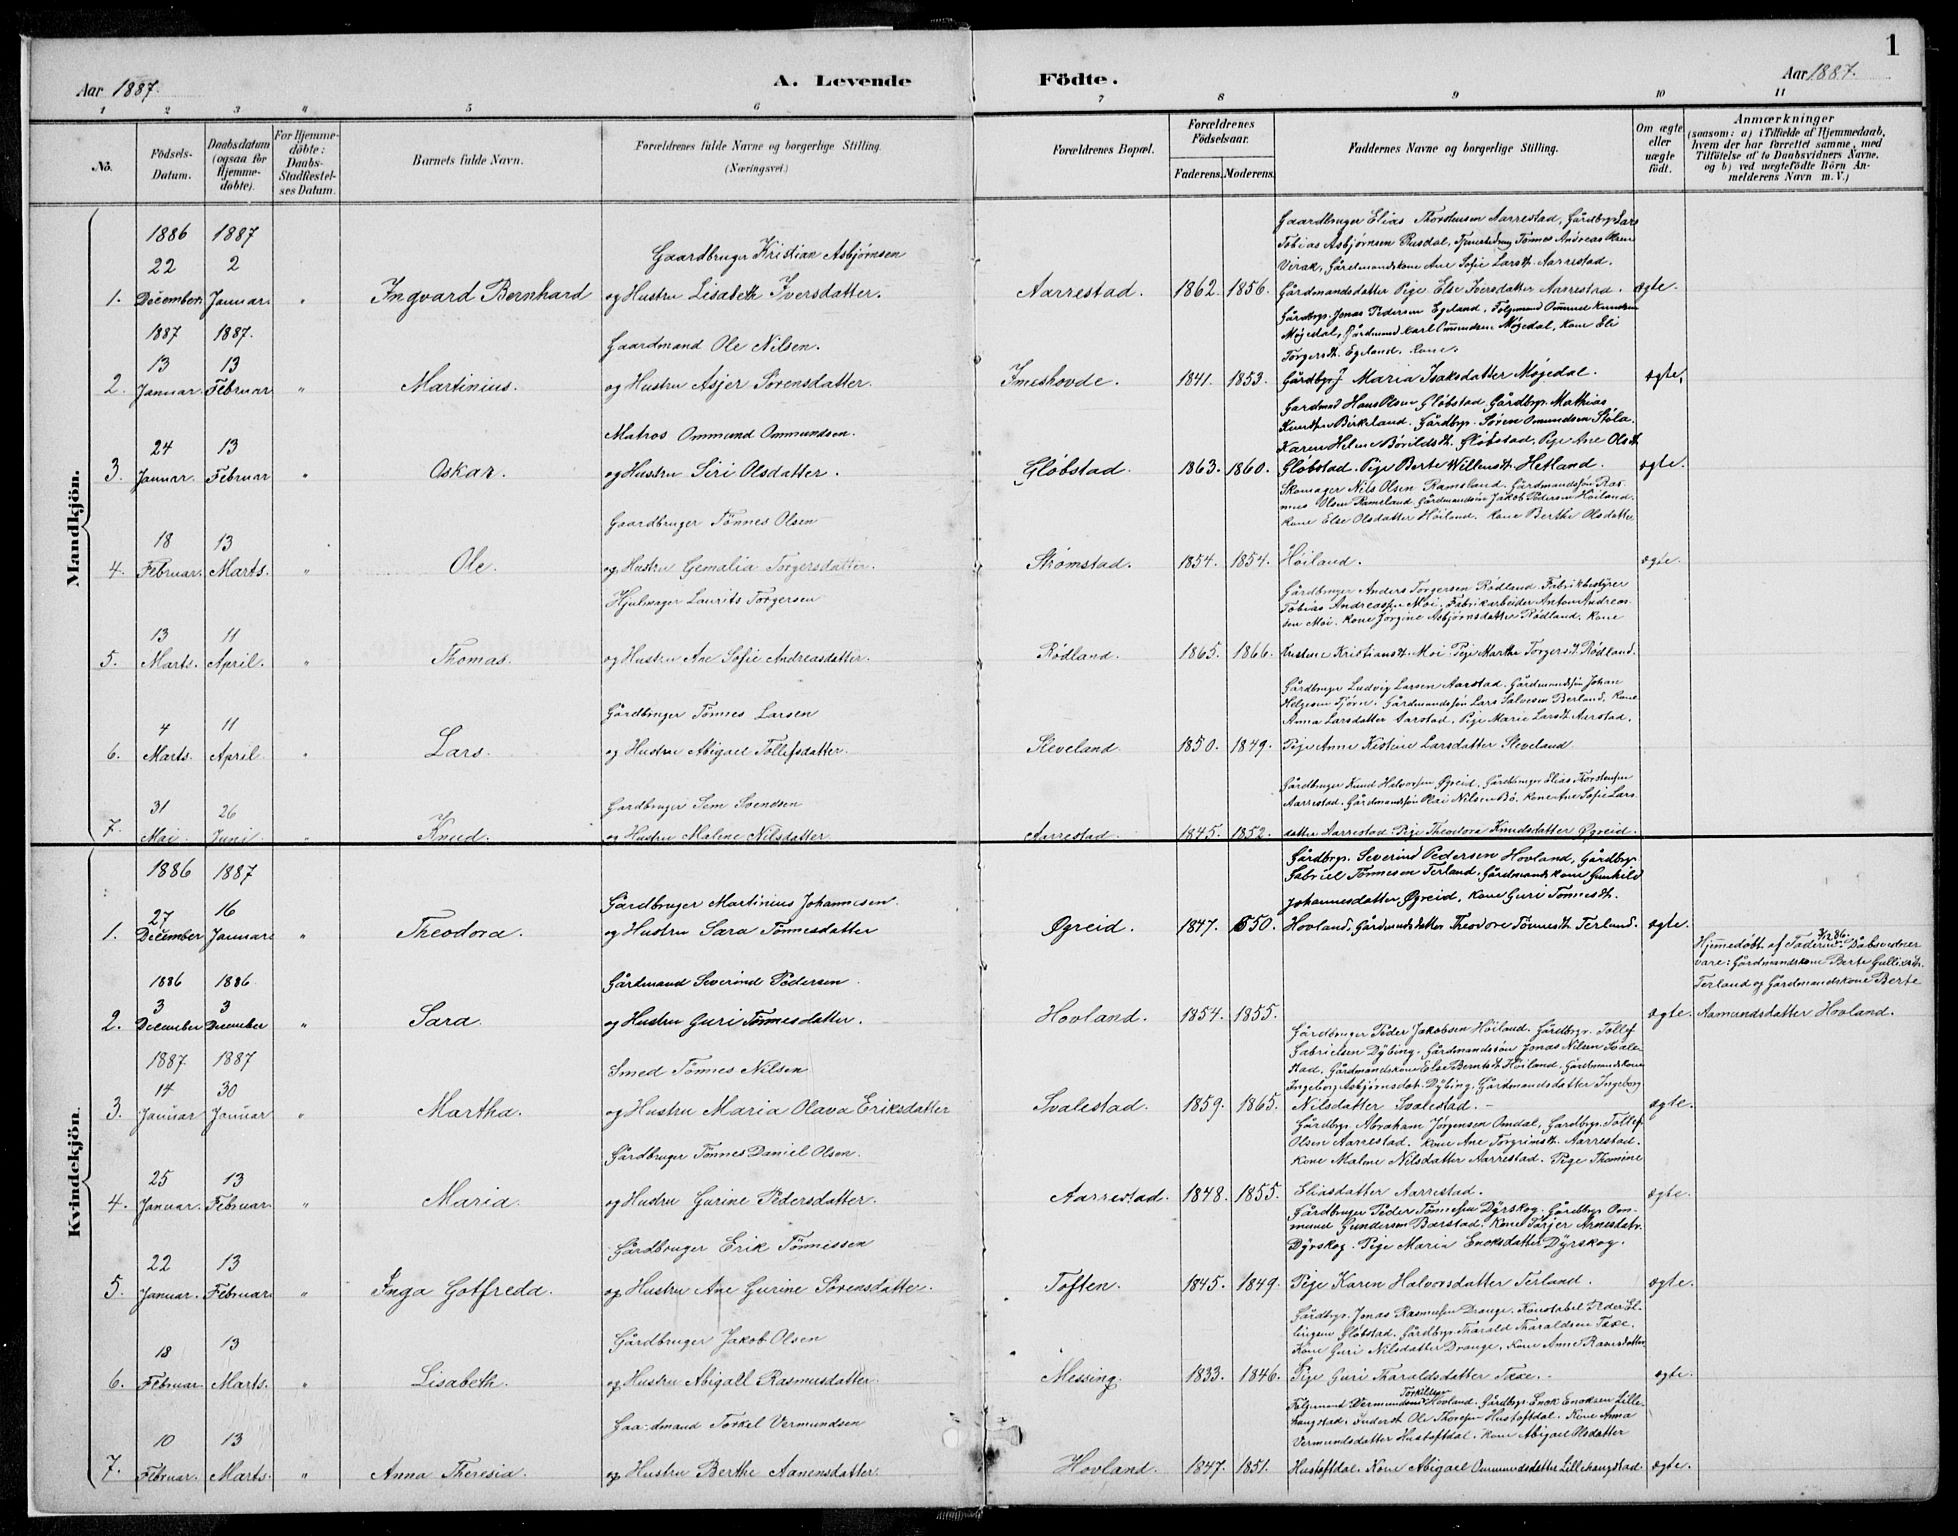 1
Aar 1887.
A. Levende
Födte.
Aar 1887.
1 2 3 " 5 6 7 8 9 10 11
No.
Födsels-
Datum.
Daabsdatum
(ogsaa for
Hjemme-
døbte).
For Hjemme-
döbte:
Daabs-
Stadfæstel-
ses Datum.
Barnets fulde Navn.
Forældrenes fulde Navne og borgerlige Stilling.
(Næringsvei.)
Forældrenes Bopæl.
Forældrenes
Födselsaar.
Faderens.
Moderens.
Faddernes Navne og borgerlige Stilling.
Om ægte
eller
uægte
födt.
Anmærkninger
(saasom: a) i Tilfælde af Hjemmedaab,
hvem der har forrettet samme, med
Tilföielse af to Daabsvidners Navne,
og b) ved uægtefödte Börn An-
melderens Navn m. V.)
Mandkjön.
1886 1887
22 2
Gaardbruger Kristian Asbjørnsen
Gaardbruger Elias Thorstensen Aarrestad, Gårdbr. Lars
Tobias Asbjørnsen Rusdal, Tjenestedreng Tønnes Andreas Olsen
Virak, Gårdmandskone Ane Sofie Larsdt. Aarrestad.
1. December Januar " Ingvard Bernhard og Hustru Lisabeth Iversdatter. Aarrestad. 1862. 1856. Gårdmandsdatter Pige Else Iversdatter Aarrestad. ægte.
1887 1887.
13 13
Gaardmand Ole Nilsen.
Gårdbgr. Jonas Pedersen Egeland, Følgemand Ommund Knudsen
Møgedal, Gårdmand Karl Ommundsen Møgedal, Kone Eli
Torgersdt. Egeland. Kone.
2. Januar. Februar " Martinius. og Hustru Asjer Sørensdatter. Imeshovde. 1841. 1853. Maria Isaksdatter Møgedal. ægte.
24 13
Matros Ommund Ommundsen.
Gardmd Hans Olsen Gløbstad, Gårdbgr. Mathias
Knudsen Birkeland. Gårdbgr. Søren Omundsen Støla
Karen Helene Børildsdt. Gløbstad, Pige Ane Olsdt
3. Januar. Februar " Oskar. og Hustru Siri Olsdatter. Gløbstad. 1863. 1860. Gløbstad. Pige Berte Willumsdt. Hetland. ægte.
18 13
Gaardbruger Tønnes Olsen
Skomager Nils Olsen Ramsland. Gårdmandssøn Ras-
mus Olsen Ramsland. Gårdmandssøn Jakob Pedersen Høiland.
Kone Else Olsdatter Høiland. Kone Berthe Olsdatter
4. Februar. Marts. " Ole. og Hustru Gemalia Torgersdatter. Strømstad. 1854. 1854. Høiland. ægte.
13 11
Hjulmager Laurits Torgersen
Gårdbruger Anders Torgersen Rødland. Fabrikbestyrer
Tobias Andreassen Moi, Fabrikarbeider Anton Andreas-
sen Moi. Kone Jørgine Asbjørnsdatter Rødland. Kone
5. Marts. April. " Thomas. og Hustru Ane Sofie Andreasdatter. Rødland. 1865. 1866. Kristiansdt. Moi. Pige Marthe Torgersdt. Rødland.
4 11
Gårdbruger Tønnes Larsen
Gårdbruger Ludvig Larsen Aarstad. Gårdmandssøn Johan
Helgesen Tjørn. Gårdmandssøn Lars Salvesen Berland. Kone
Anna Larsdatter Aarstad. Pige Marie Larsdt. Aarstad.
6. Marts. April. " Lars. og Hustru Abigael Tollefsdatter. Sleveland. 1850. 1849. Pige Anne Kistine Larsdatter Sleveland.
31 26
Gardbruger Sem Svendsen
Gårdbruger Knud Halvorsen Øgreid, Gårdbruger Elias Thorstensen
Aarrestad. Gårdmandssøn Nilsen Bø. Kone Ane Sofie Lars-
7. Mai. Juni. " Knud. og Hustru Malene Nilsdatter. Aarrestad. 1845. 1852. datter Aarrestad. Pige Theodora Knudsdatter Øgreid.
Kvindekjön.
1886 1887
27 16
Gårdbruger Martinius Johannesen.
Gårdbgr. Severind Pedersen Hovland, Gårdbgr.
Gabriel Tønnesen Terland, Gårdmandskone Gunhild
Johannesdatter Øgreid, Kone Guri Tønnesdt.
1. December Januar " Theodora. og Hustru Sara Tønnesdatter Øgreid. 1847. 1850. Hovland, Gårdmandsdatter Theodore Tønnesdt. Terland. ægte.
1886 1886
3 3
Gårdmand Severind Pedersen
Hjemmedøbt af Faderen 3/12 86. Dåbsvidner
vare: Gårdmandskone Berte Gulliksdt.
Terland og Gårdmandskone Berte
2. December December " Sara. og Hustru Guri Tønnesdatter. Hovland. 1854. 1855. ægte. Aamundsdatter Hovland.
1887 1887
14 30
Smed Tønnes Nilsen
Gårdbruger Peder Jakobsen Høiland. Gårdbgr. Tollef
Gabrielsen Dybing. Gårdmandssøn Jonas Nilsen Svale-
stad, Gårdmandskone Else Berntsdt. Høiland. Gårdmandskone
Ingeborg Asbjørnsdat. Dybing. Gårdmandsdatter Ingeborg
3. Januar Januar " Martha. og Hustru Maria Olava Eriksdatter Svalestad. 1859. 1865. Nilsdatter Svalestad. ægte.
25 13
Gårdbruger Tønnes Daniel Olsen.
Gårdbgr. Abraham Jørgensen Omdal, Gårdbgr. Tollef
Olsen Aarrestad. Kone Ane Torgrimsdt. Aarrestad.
Kone Malene Nilsdatter Aarrestad. Pige Thomine
4. Januar. Februar. " Maria. og Hustru Gurine Pedersdatter. Aarrestad. 1848. 1855. Eliasdatter Aarrestad. ægte.
22 13
Gårdbruger Erik Tønnessen
Gårdbruger Peder Tønnessen Dyrskog. Gårdbgr. Om-
mund Gundersen Barstad. Kone Tarjer Arnesdatr.
Dyrskog. Pige Maria Enoksdatter Dyrskog.
5. Januar. Februar " Inga Gotfreda. og Hustru Ane Gurine Sørensdatter. Toften. 1845. 1849. Pige Karen Halvorsdatter Terland. ægte.
18 13
Gårdbruger Jakob Olsen
Gårdbgr. Jonas Rasmussen Drange. Konstabel Peder El-
lingsen Gløbstad. Gårdbgr. Tharald Tharaldsen Taxe.
Kone Guri Nilsdatter Drange, Kone Anne Rasmusdatter
6. Februar Marts. " Lisabeth. og Hustru Abigall Rasmusdatter. Messing. 1833. 1846. Pige Guri Tharaldsdatter Taxe. ægte.
10 13
Gaardmand Torkel Vermundsen
Følgemand Vermund Hovland. Gårdbgr. Enok Enoksen Lille-
hangstad. Inderst Ole Thorsen Hustoftdal. Kone Anna
Vermundsdatter Hustoftdal. Kone Abigael Olsdatter
7. Februar. Marts. " Anna Theresia. og Hustru Berthe Aanensdatter. Hovland. 1847. 1851. Hustoftdal. Kone Abigael Ommundsdatter Lillehangstad. ægte.